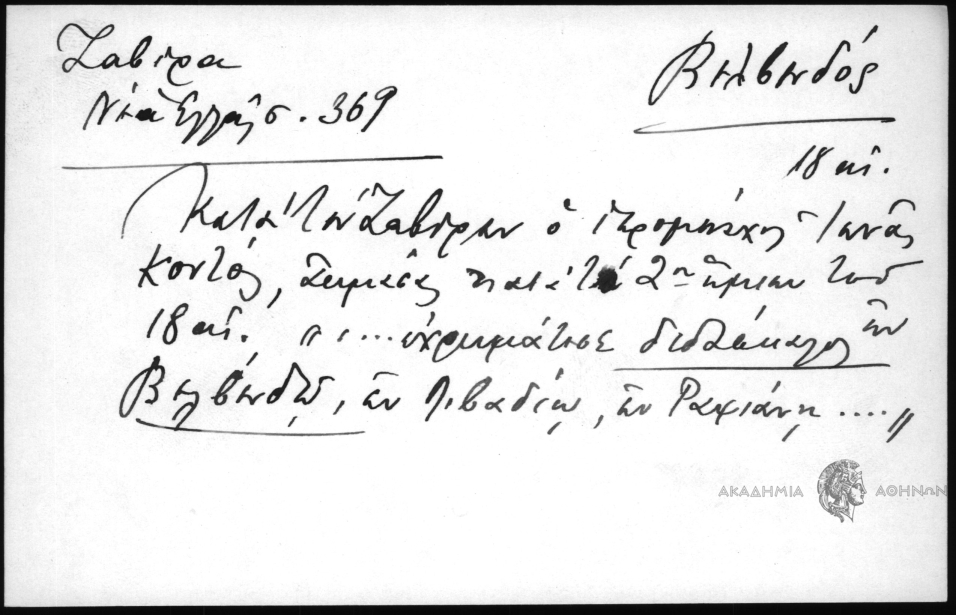 Ζαβίρα
Βελβενδός
Νέα Ἑλλὰς σ. 369
18 αἰ.
Κατὰ τὸν Ζαβίραν ὁ ἱερομόναχος Ἰωνᾶς
Κοντός, ἀκμάσας κατὰ τὸ 2ον ἥμισυ τοῦ
18 αἰ. "....ἐχρημάτισε διδάσκαλος ἐν
Βελβενδῷ, ἐν Λιβαδίῳ, ἐν Ραψιάνῃ...."
ΑΚΑΔΗΜΙΑ ΑΘΗΝΩΝ